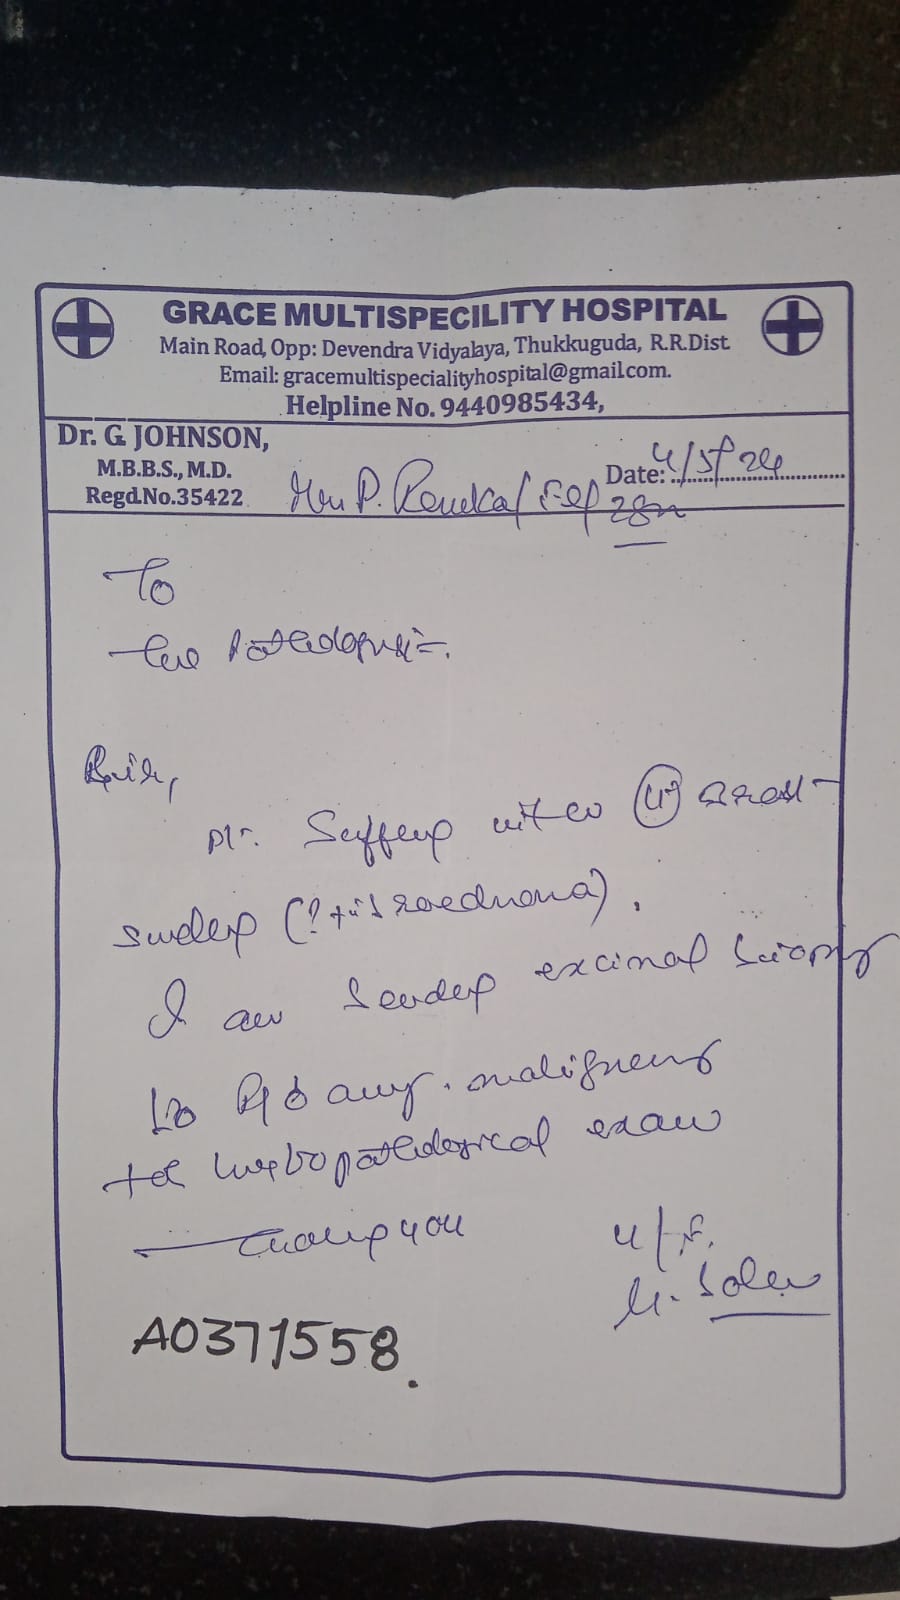 GRACE MULTISPECILITY HOSPITAL
Main Road, Opp: Devendra Vidyalaya, Thukkuguda, R.R.Dist
Email: gracemultispecialityhospital@gmail.com.
Helpline No. 9440985434,
Dr. G. JOHNSON,
M.B.B.S., M.D.
Regd.No.35422
Date: 4/5/24
P. Renuka
To
the Pathologist.
pt. Suffering with breast
swelling
I am sending excisional biopsy
to R/o any malignancy
histopathological exam
Thanking you
A0371558.